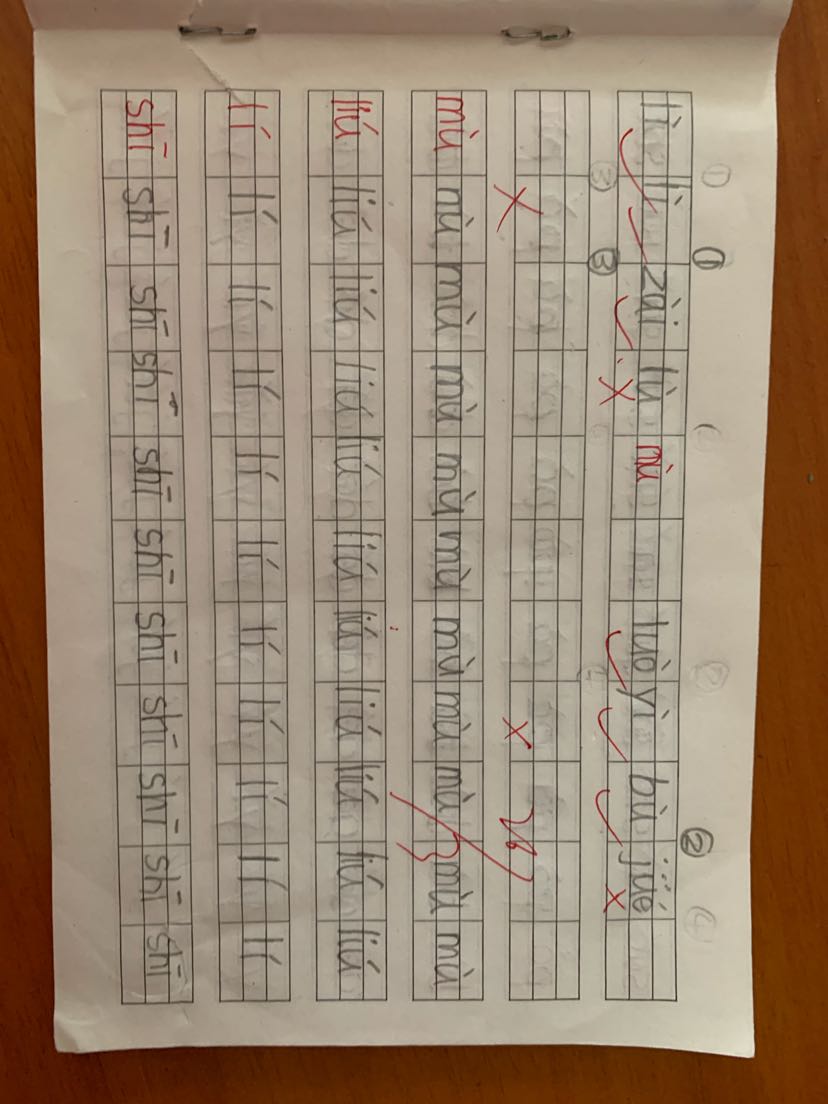 ① ②
lì lì zài lù mù luò yì bù jüé
③
mù mù mù mù mù mù mù mù mù mù mù
liú liú liú liú liú liú liú liú liú liú liú
lí lí lí lí lí lí lí lí lí lí lí
shī shī shī shī shī shī shī shī shī shī shī